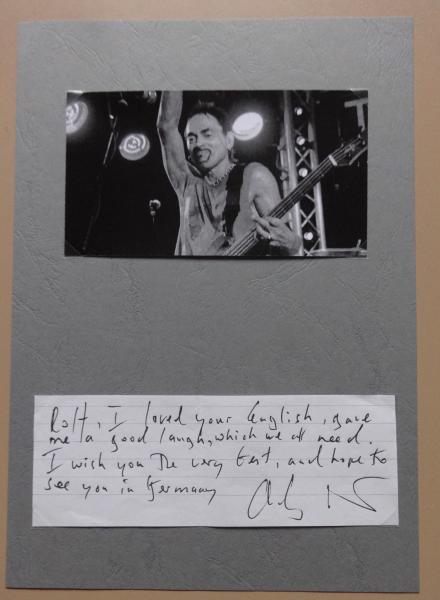 Rolf, I loved your English, gave
me a good laugh, which we all need.
I wish you the very best, and hope to
see you in Germany